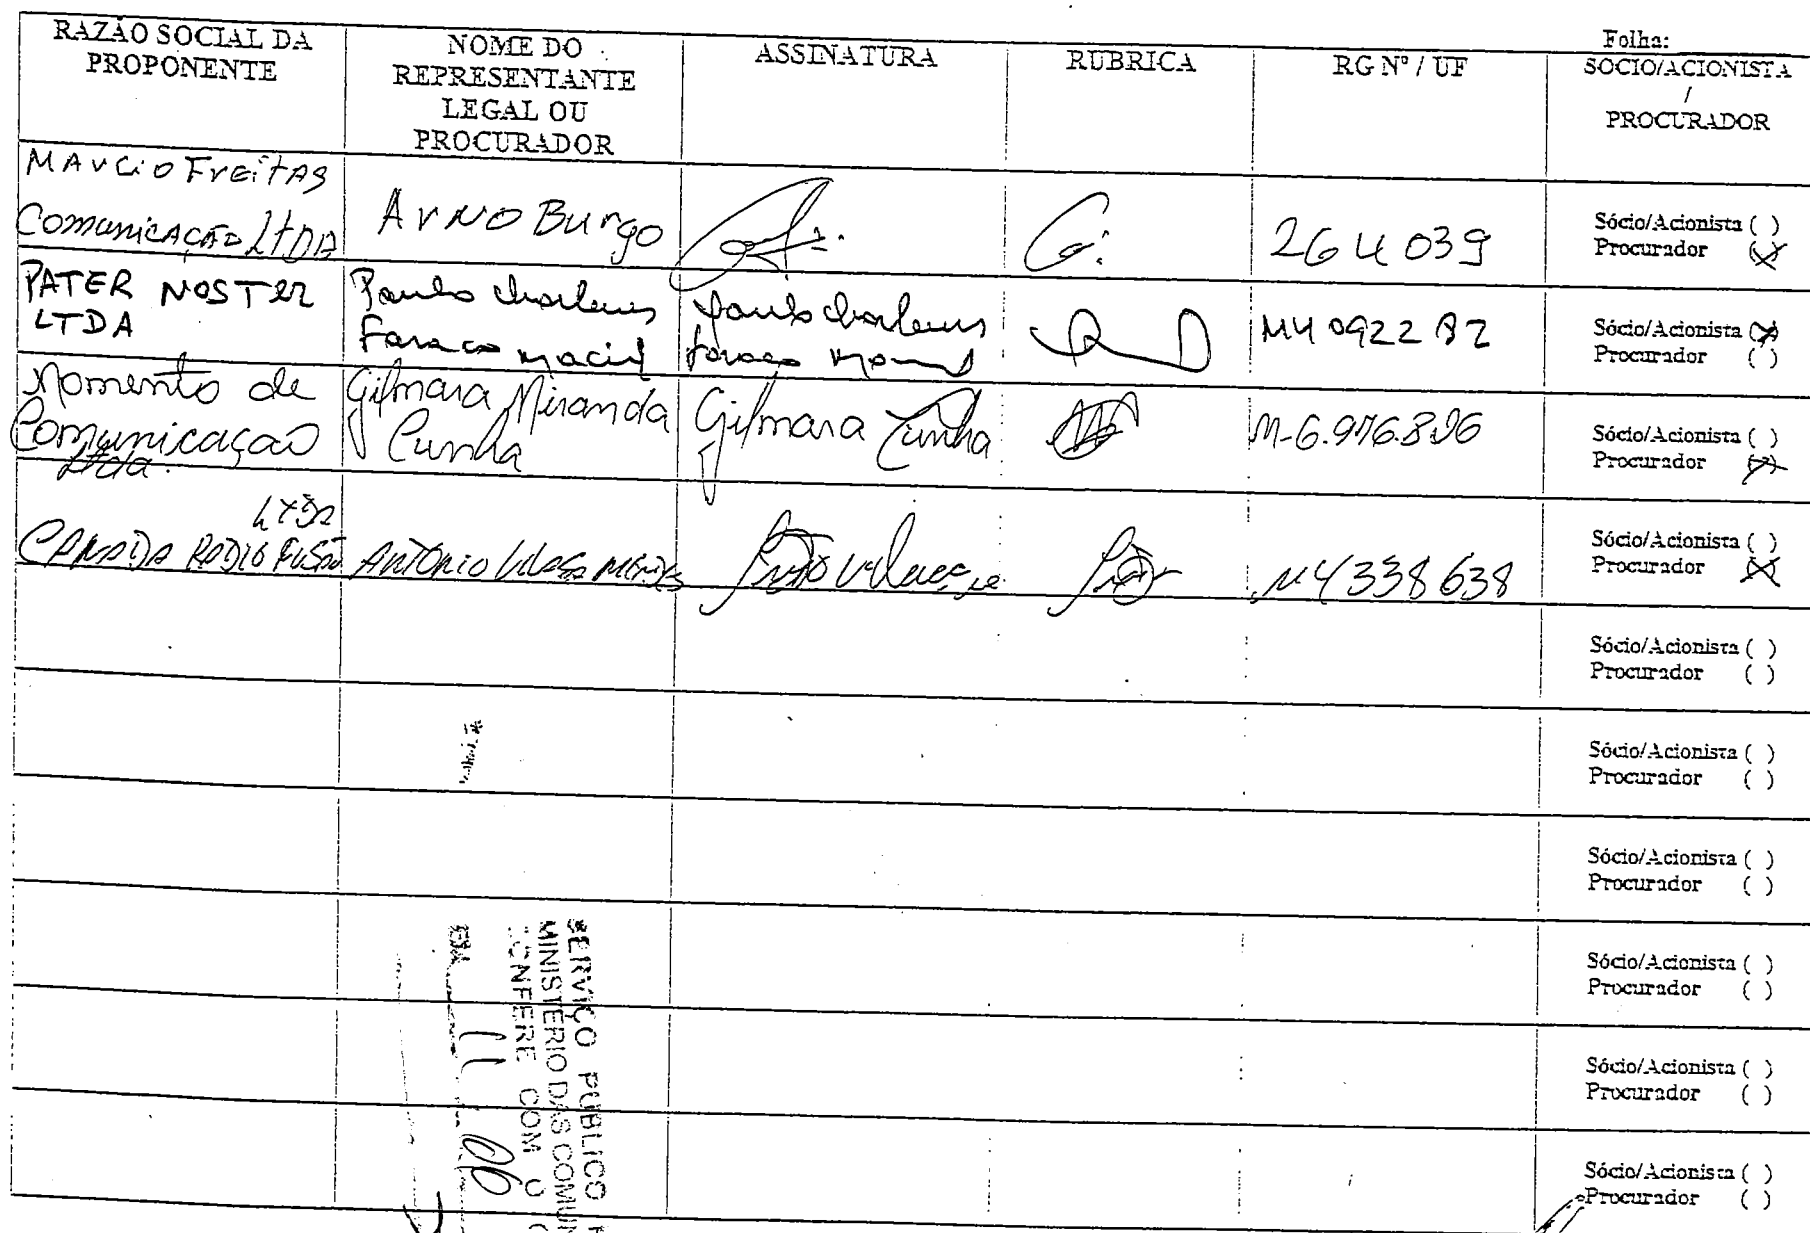 Folha:
RAZÃO SOCIAL DA PROPONENTE
NOME DO REPRESENTANTE LEGAL OU PROCURADOR
ASSINATURA
RUBRICA
RG Nº / UF
SÓCIO/ACIONISTA / PROCURADOR
Marcio Freitas
Comunicação Ltda
Arno Burgo
264039
Sócio/Acionista ( )
Procurador (X)
PATER NOSTER
LTDA
Paulo
Faraco Maciel
Paulo
Faraco
M4092282
Sócio/Acionista (X)
Procurador ( )
Momento de
Comunicação
Ltda.
Gilmara Miranda
Cunha
Gilmara Cunha
M-6.976.806
Sócio/Acionista ( )
Procurador (X)
LTDA
RADIO FUSÃO
ANTONIO
M4338638
Sócio/Acionista ( )
Procurador (X)
Sócio/Acionista ( )
Procurador ( )
Sócio/Acionista ( )
Procurador ( )
Sócio/Acionista ( )
Procurador ( )
Sócio/Acionista ( )
Procurador ( )
Sócio/Acionista ( )
Procurador ( )
Sócio/Acionista ( )
Procurador ( )
SERVIÇO PUBLICO
MINISTERIO DAS COMUN
CONFERE COM O
EM 11 06